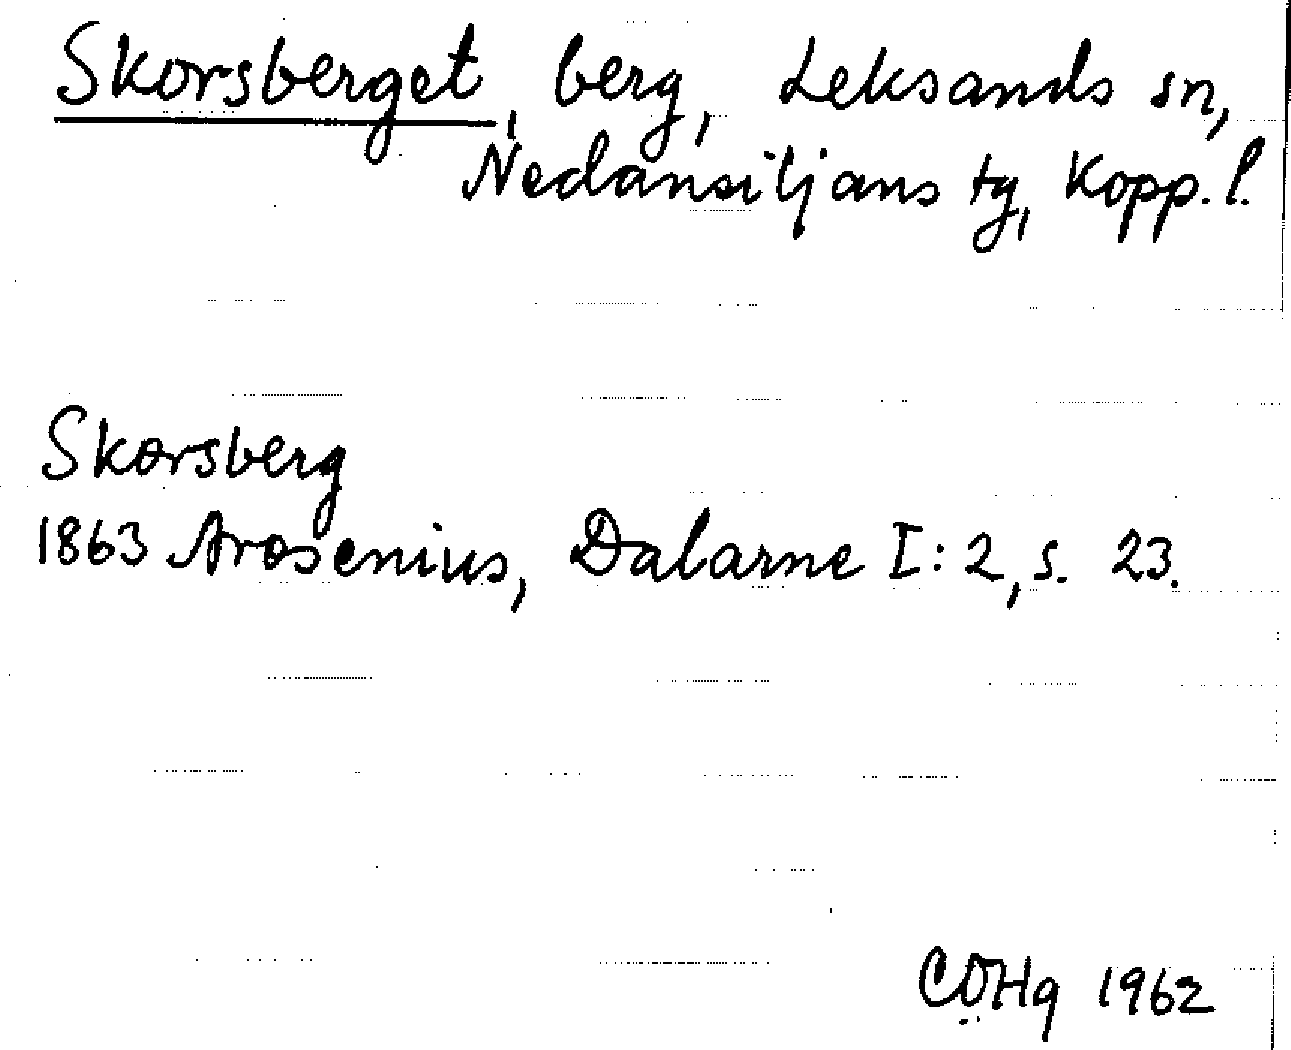 Skorsberget, berg, Leksands sn,
Nedansiljans tg, Kopp. l.
Skorsberg
1863 Arosenius, Dalarne I: 2, s. 23.
COHg 1962